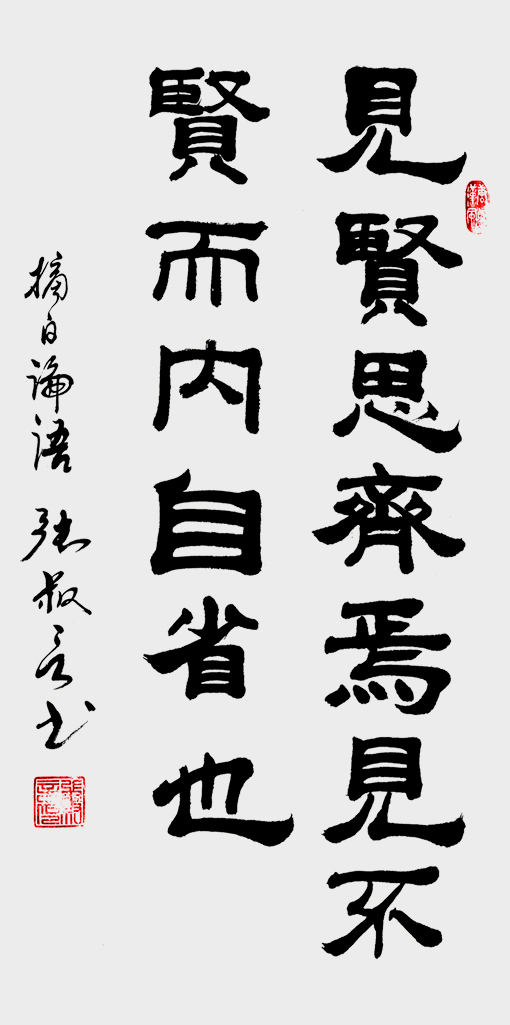 見賢思齊焉見不
賢而内自省也
摘自論語 張叔言书